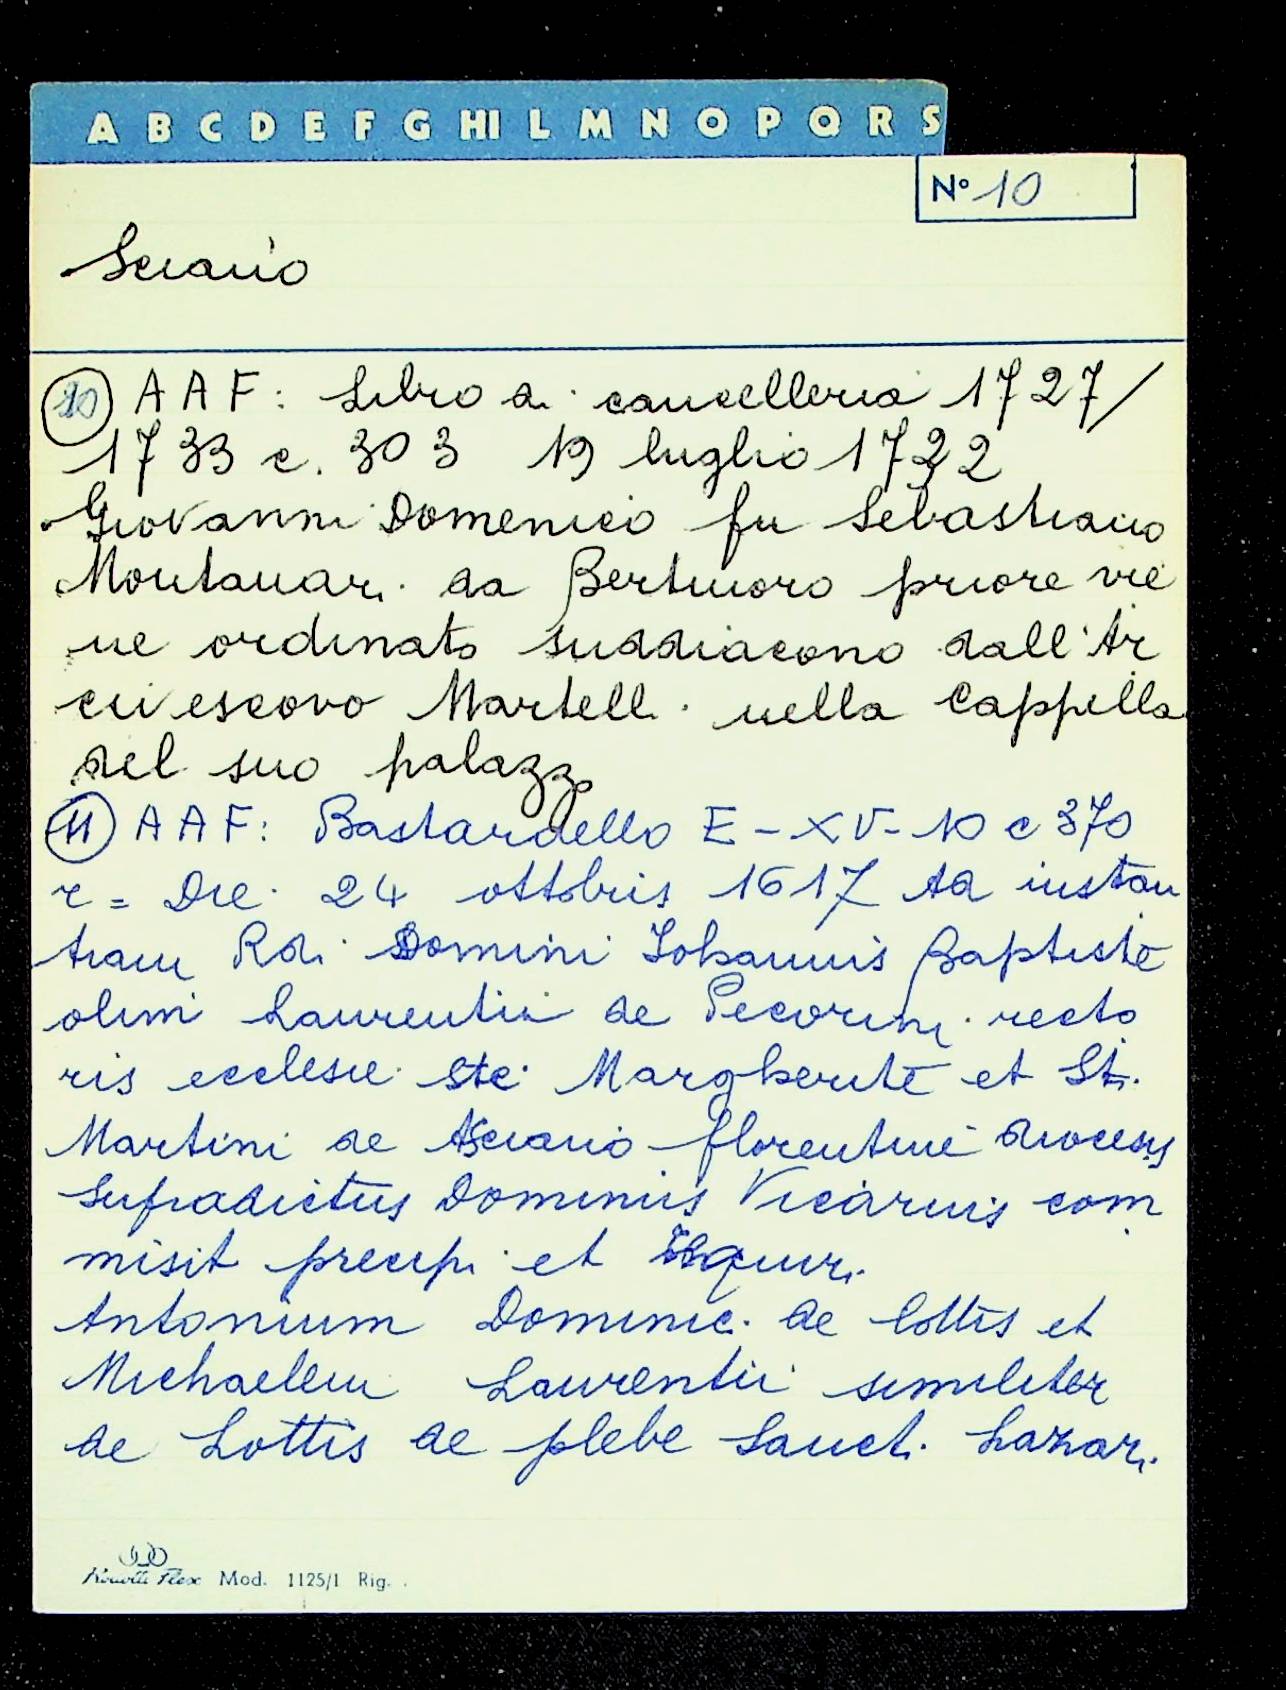 A B C D E F G HI L M N O P Q R S
N° 10
Sciano
10 AAF: Libro di cancelleria 1727/
1733 c. 303 19 luglio 1722
Giovanni Domenico fu Sebastiano
Montanari da Bertinoro priore vie
ne ordinato suddiacono dall'Ar
civescovo Martelli nella Cappella
del suo palazzo
11 AAF: Bastardello E-XV-10 c 370
r = Die 24 ottobris 1617 Ad instan
tiam Rdi Domini Johannis Baptiste
olim Laurentii de Pecorini recto
ris ecclesie Ste Margherite et Sti
Martini de Asciano florentine diocesis
Supradictus Dominus Vicarius com
misit precipi et
Antonium Dominici de lottis et
Michaelem Laurentii similiter
de Lottis de plebe Sancti Lazari
Mod. 1125/1 Rig.